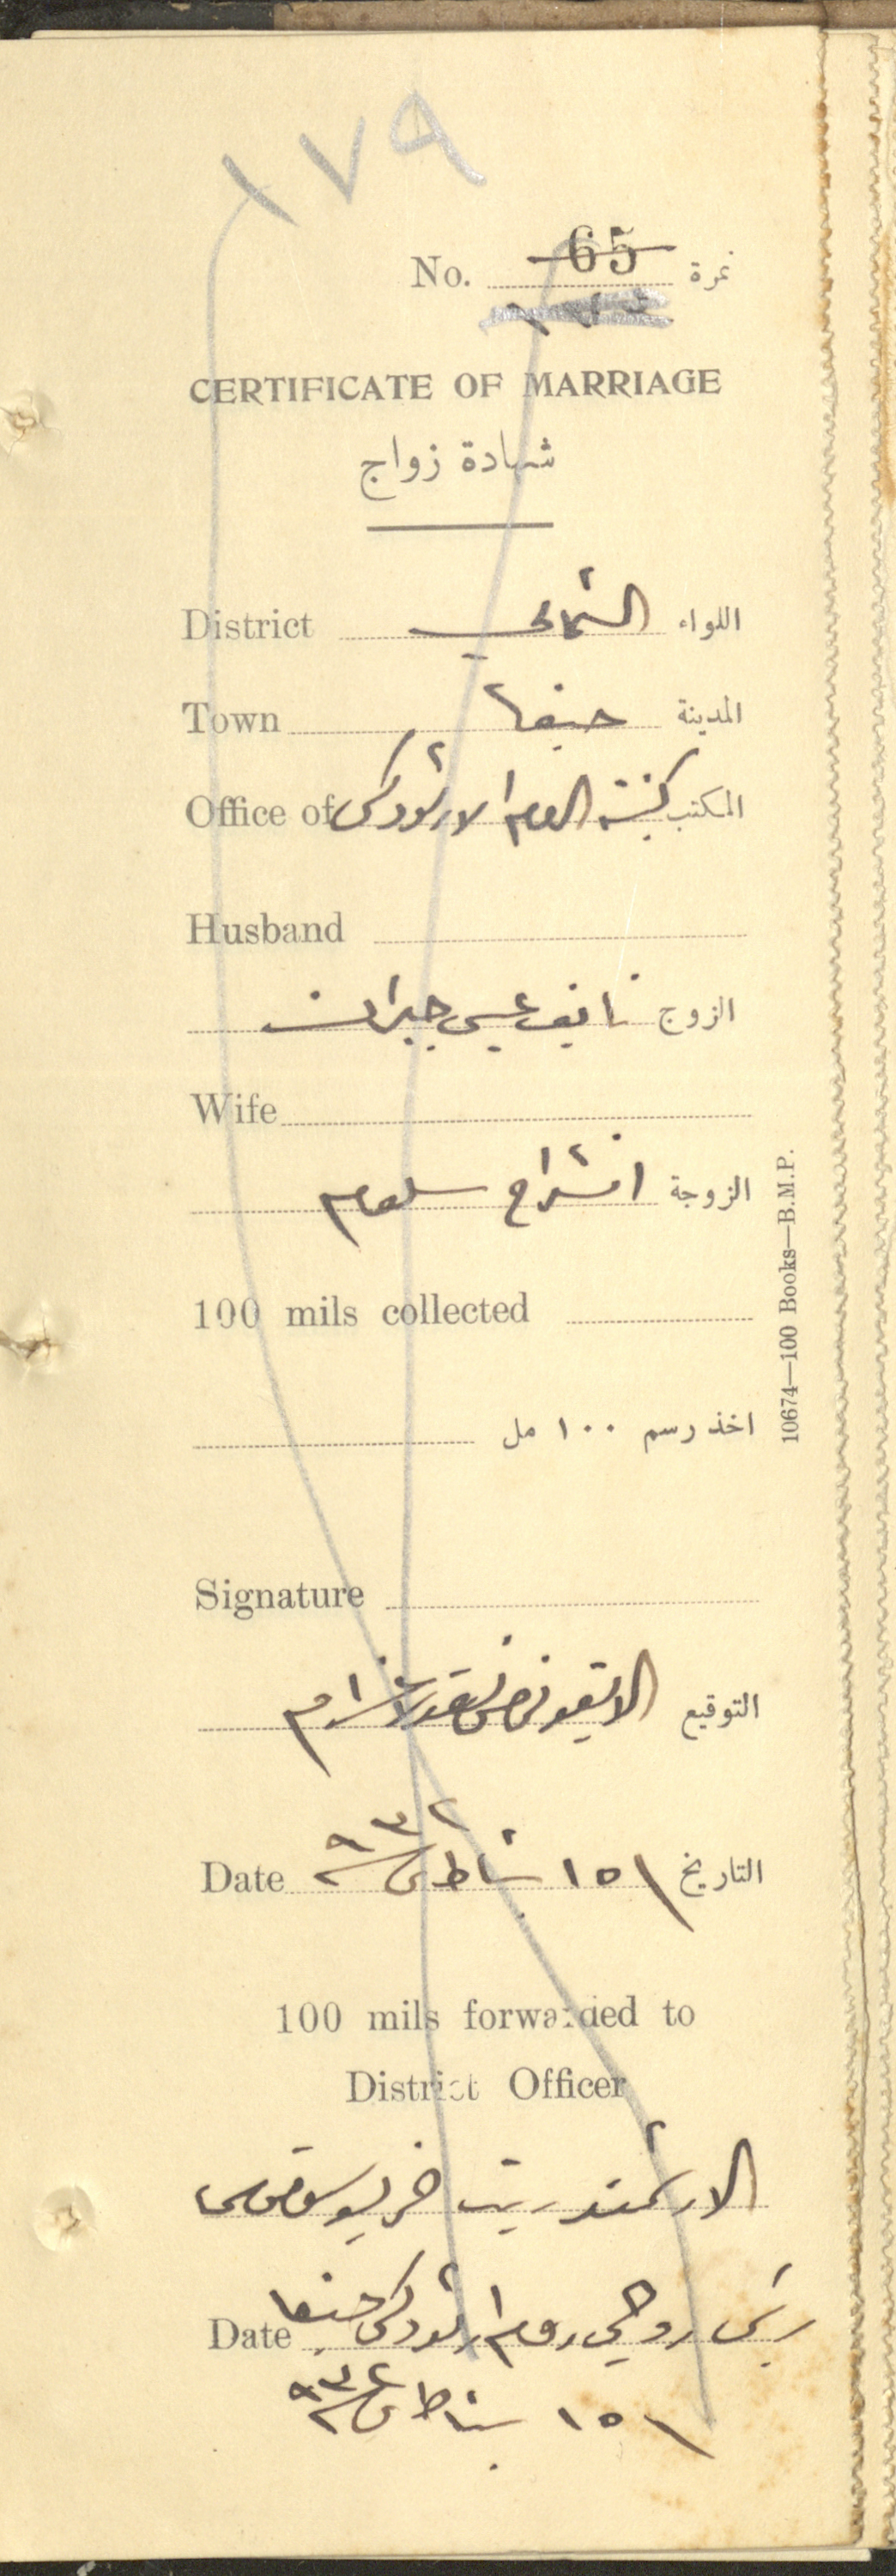 ١٧٩
No. 65 نمرة
CERTIFICATE OF MARRIAGE
شهادة زواج
District الشمالي اللواء
Town حيفا المدينة
Office of كنيسة الروم الارثوذكس المكتب
Husband
الزوج نايف عيسى جبران
Wife
الزوجة انشراح سلوم
100 mils collected
اخذ رسم ١٠٠ مل
Signature
التوقيع
Date ١٥ شباط ٩٣٢ التاريخ
100 mils forwarded to
District Officer
الارشمندريت
رئيس روحي روم ارثوذكس حيفا
Date
١٥ شباط ٩٣٢
10674—100 Books—B.M.P.